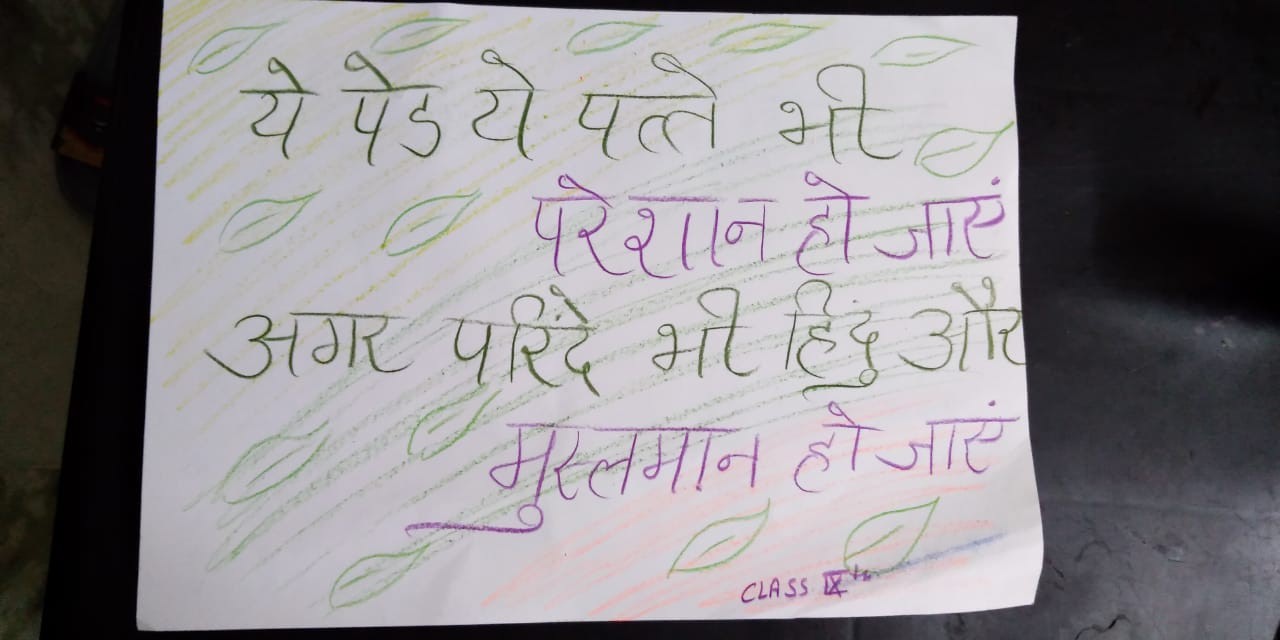 ये पेड ये पत्ते भी
परेशान हो जाएं
अगर परिंदे भी हिंदु और
मुस्लमान हो जाएं
CLASS IXth